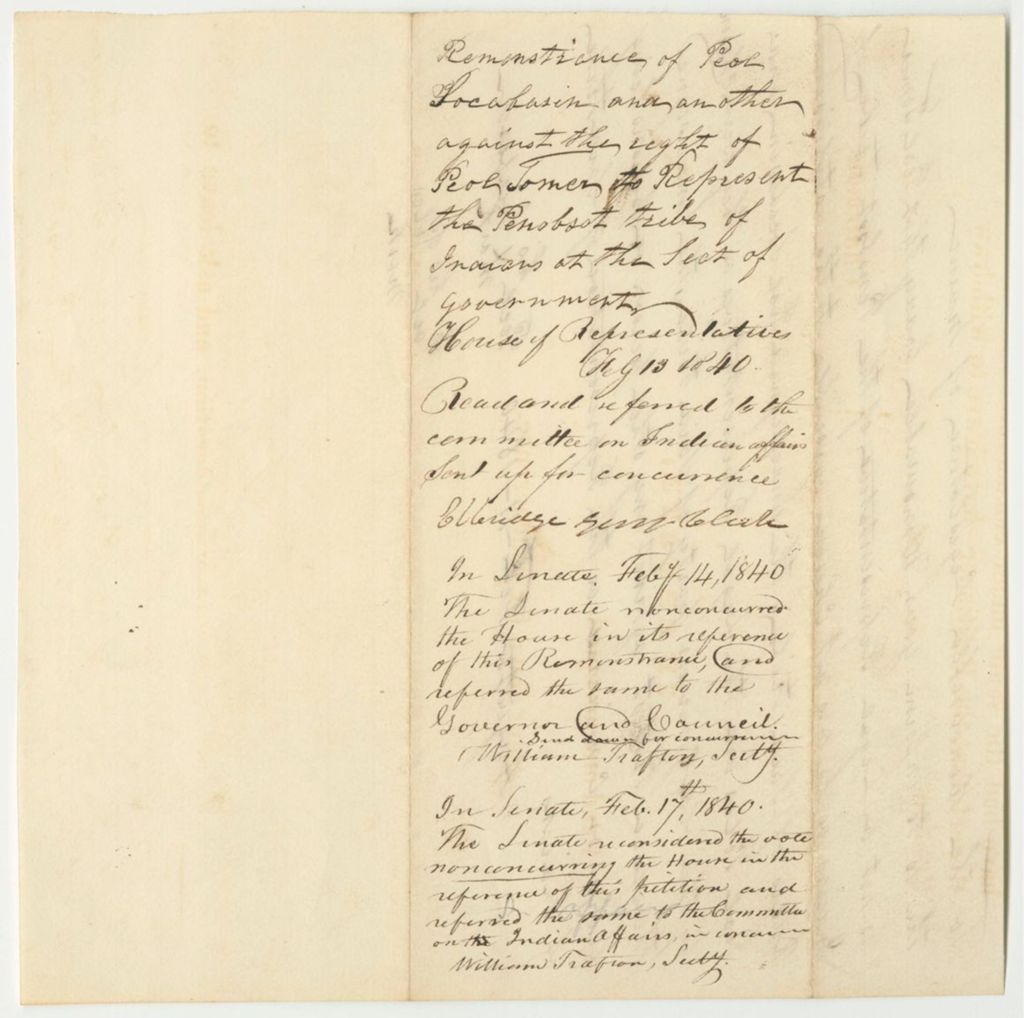 Remonstrance of Peol
Socabasin and another
against the right of
Peol Tomer to Represent
the Penobsot tribe of
Indians at the Seat of
government
House of Representatives
Feb 13 1840.
Read and referred to the
committee on Indian affairs
Sent up for concurrence
Elbridge Gerry Clerk
In Senate. Feby 14, 1840
The Senate nonconcurred
the House in its reference
of this Remonstrance, and
referred the same to the
Governor and Council.
Send down for concurrence
William Trafton, Secty.
In Senate, Feb. 17th, 1840.
The Senate reconsidered the vote
nonconcurring the House in the
reference of this petition and
referred the same to the Committee
on the Indian Affairs, in concurrence
William Trafton, Secty.